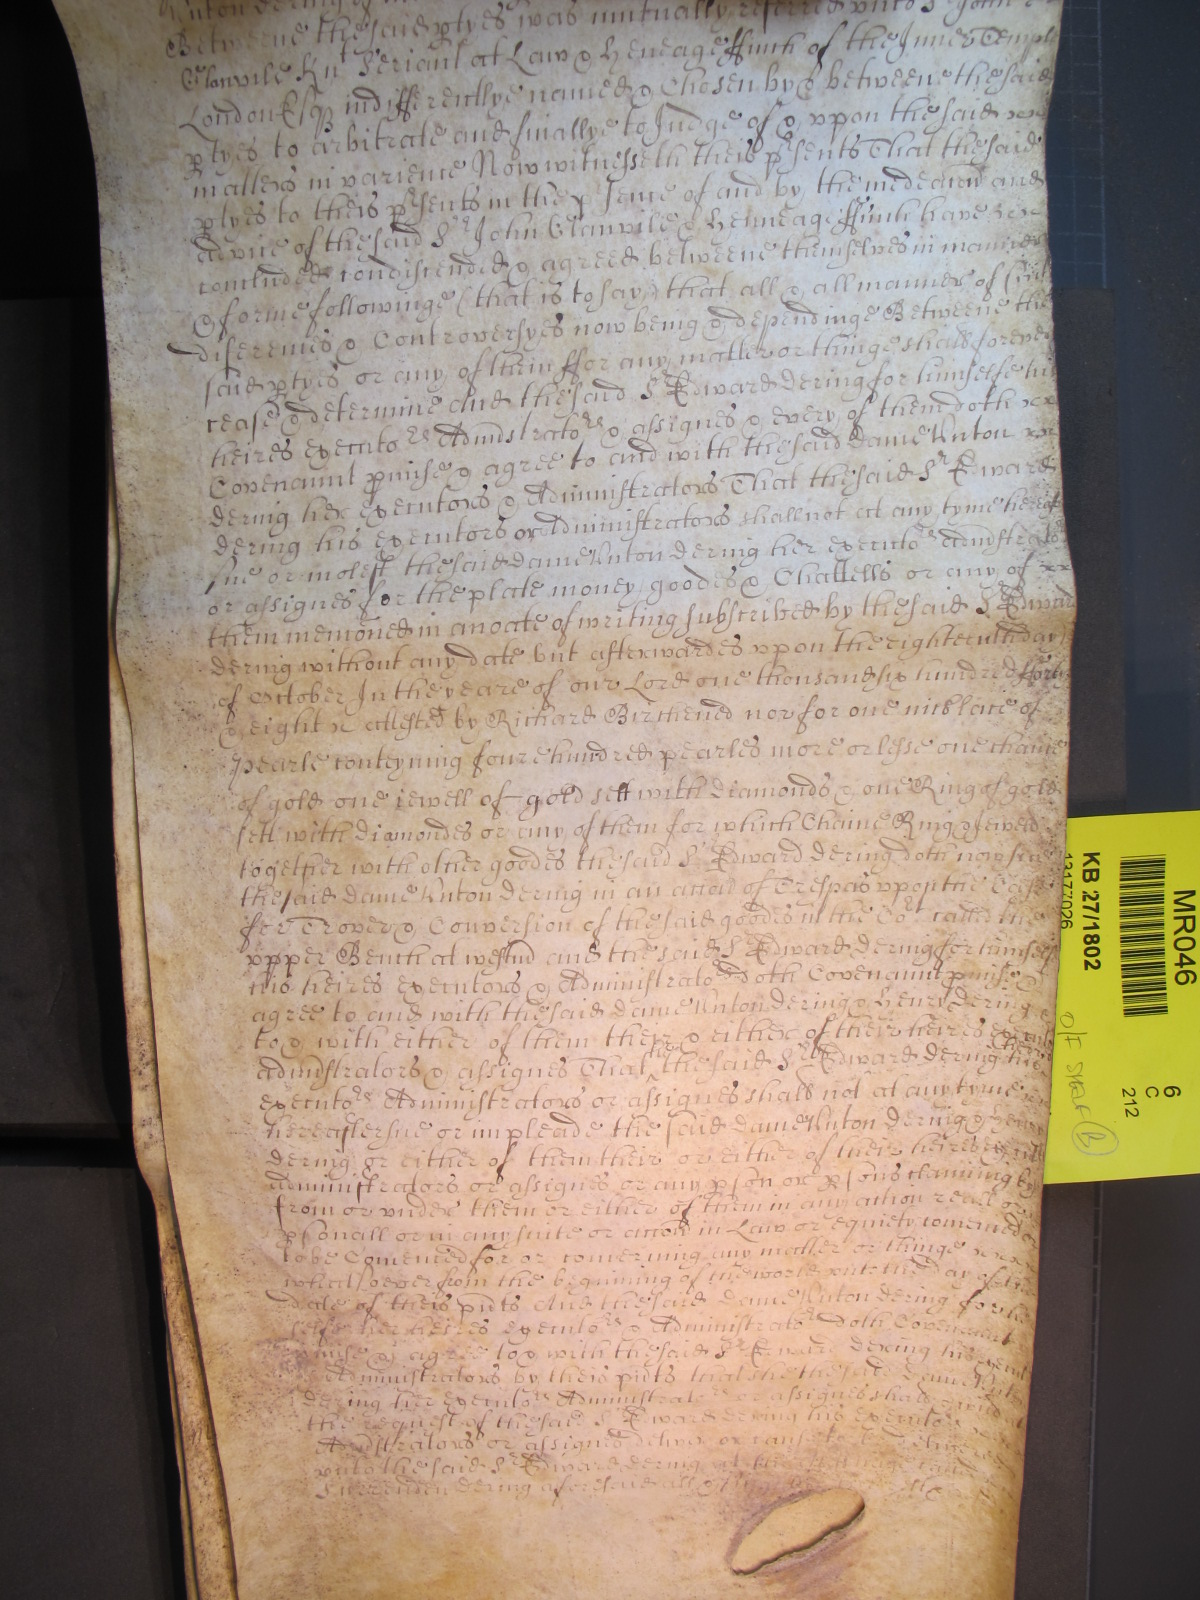 Unton Dering
Betweene the said ptyes was mutually referred unto Sr John
Glanvile Knt Seriant at Law & Heneage ffinch of the Inner Temple
London Esqr indifferentlye named & Chosen by & betweene the said
ptyes to arbitrate and finallye to Judge of & upon the said
matters in varience Now witnesseth theis psents That the said
ptyes to theis psents in the psence of and by the mediacion and
advice of the said Sr John Glanvile & Henneage ffinch have
concluded condiscended & agreed betweene themselves in manner
& forme followinge (that is to say) that all & all manner of suits
diferences & Controversyes now being & dependinge Betweene the
said ptyes or any of them ffor any matter or thinge shall forever
cease & determine And the said Sr Edward Dering for himselfe his
heires executors Administrators & assignes & every of them doth
Covenaunt pmise & agree to and with the said Dame Unton
Dering her executors & Administrators That the said Sr Edward
Dering his executors or Administrators shall not at any tyme hereaft
sue or molest the said dame Unton Dering her executors administrators
or assignes for the plate money goodes & Chattells or any of
them mencioned in a noate of writing subscribed by the said Sr Edward
Dering without any date but afterwardes upon the eighteenth day
of October In the yeare of our Lord one thousand six hundred forty
& eight attested by Richard Birchened nor for one necklace of
Pearle conteyning foure hundred pearles more or lesse one chaine
of gold one iewell of gold sett with diamonds & one Ring of gold
sett with diamondes or any of them for which Chaine Ring & Jewell
together with other goodes the said Sr Edward Dering doth now sue
the said dame Unton Dering in an accion of Trespas upon the Case
for Trover & Conversion of the said goodes in the Cort called the
upper Bench at Westmd and the said Sr Edward Dering for himself
his heires executors & Administrators doth Covenaunt pmise &
agree to and with the said Dame Unton Dering & Henry Dering
to & with either of them their & either of their heires executors
administrators & assignes That the said Sr Edward Dering his
executors Administrators or assignes shall not at any tyme
hereafter sue or impleade the said dame Unton Dering & Henry
Dering or either of them their or either of their heires
Administrators or assignes or any pson or psons claiming by
from or under them or either of them in any action reall or
psonall or in any suite or accion in Law or equiety comenced or
to be Comenced for or concerning any matter or thinge
whatsoever from the beginning of the world unto the day of the
date of theis psnts And the said Dame Unton Dering for her
selfe her heires executors & Administrators doth Covenaunt
pmise & agree to & with the said Sr Edward Dering his
Administrators by theis psnts that she the said Dame Unton
Dering her executors Administrators or assignes shall
the request of the said Sr Edward Dering his executors
Administrators or assignes deliver or cause to
unto the said Sr Edward Dering at the
Surrenden Dering aforesaid all
MR046
KB 27/1802
13177026
6
C
212